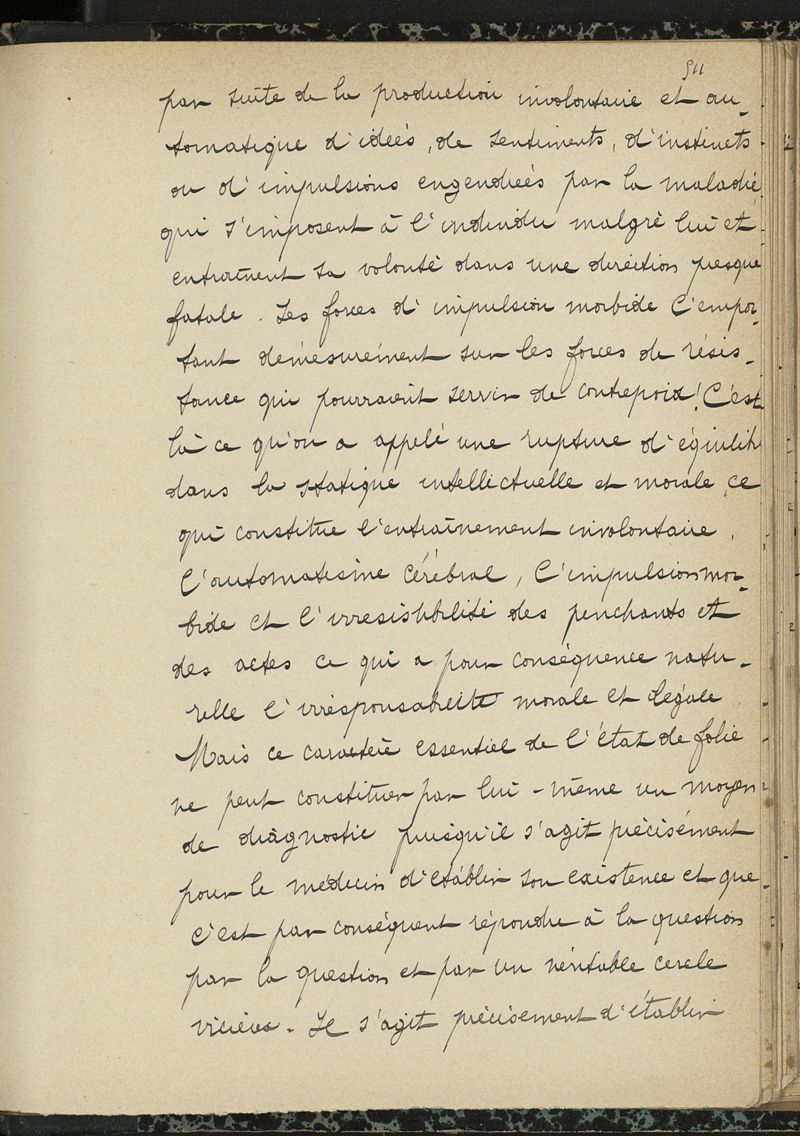 511
par suite de la production involontaire et au-
tomatique d'idées, de sentiments, d'instincts
ou d'impulsions engendreés par la maladie
qui s'imposent à l'individu malgré lui et
entraînent sa volonté dans une direction presque
fatale. Les forces d'impulsion morbide l'empor-
tant démesurément sur les forces de résis-
tance qui pourraient servir de contrepoid! C'est
là ce qu'on a appelé une rupture d'équilib
dans la statique intellectuelle et morale, ce
qui constitue l'entraînement involontaire,
l'automatisme cérébral, l'impulsion mor-
bide et l'irresistibilité des penchants et
des actes ce qui a pour conséquence natu-
relle l'irresponsabilité morale et légale
Mais ce caractère essentiel de l'état de folie
ne peut constituer par lui-même un moyen
de diagnostic puisqu'il s'agit précisément
pour le médecin d'établir son existence et que
c'est par conséquent répondre à la question
par la question et par un véritable cercle
vicieux. Il s'agit précisement d'établir